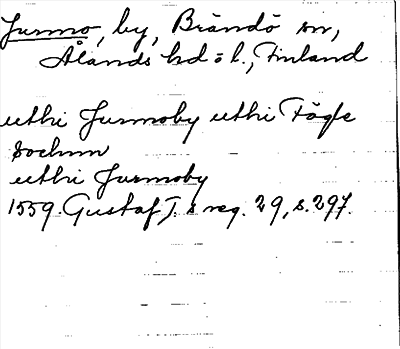 Jurmo, by, Brändö sn,
Ålands hd o l., Finland
uthi Jurmoby uthi Fögle
Sochnn
uthi Jurmoby
1559. Gustaf I.s reg. 29, s. 297.